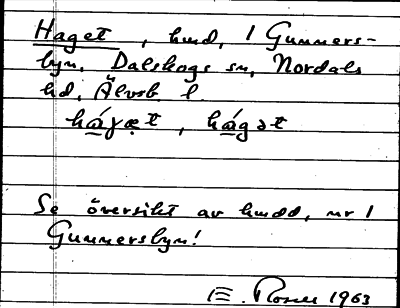 Haget, hmd, 1 Gunners-
byn, Dalskogs sn, Nordals
hd, Älvsb l.
Se översikt av hmdd, nr 1
Gunnersbyn!
E. Rosell 1963